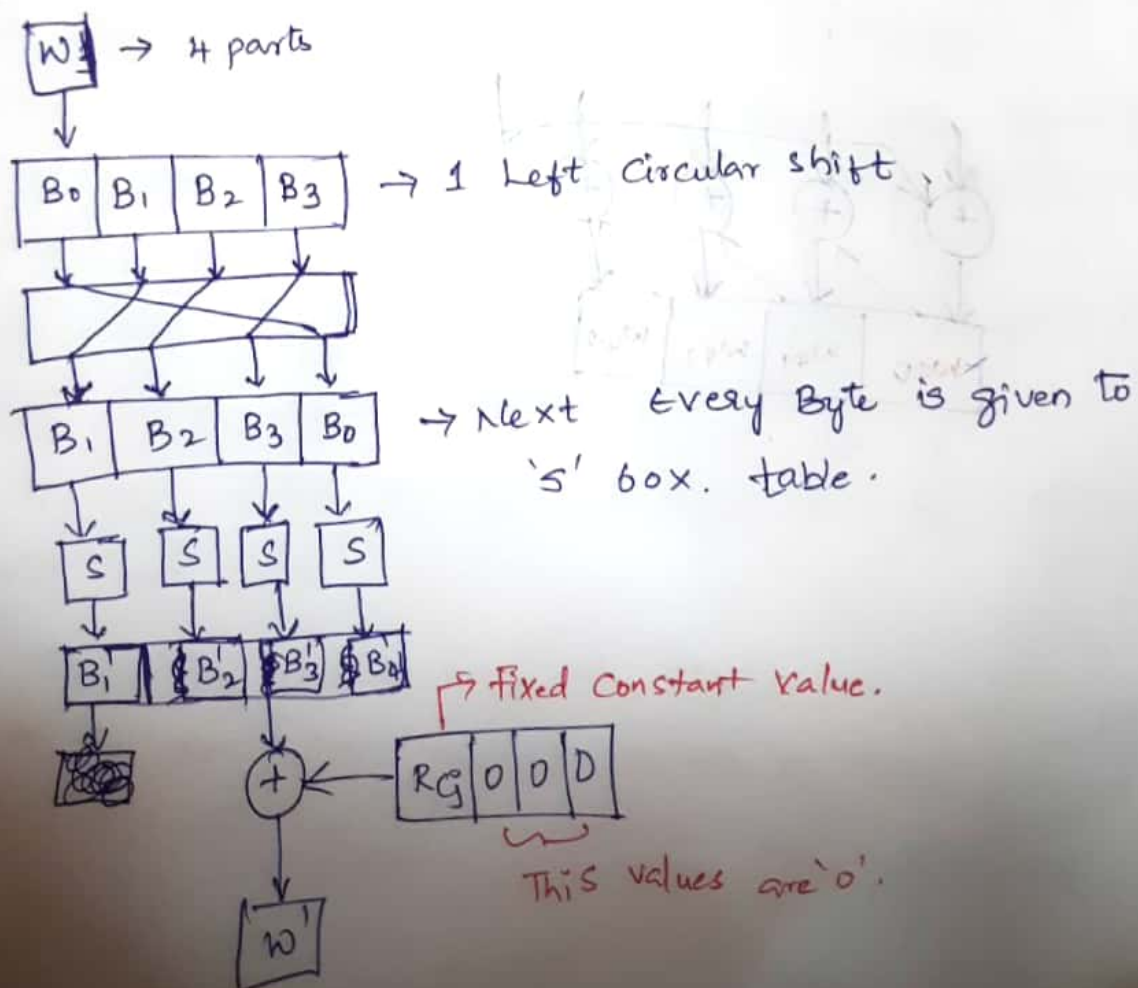 W → 4 parts
B0 B1 B2 B3 → 1 Left Circular shift
B1 B2 B3 B0 → Next Every Byte is given to
's' box. table.
S S S S
B1' B2' B3' B4'
→ fixed constant value.
+ ← RG 0 0 0
This values are '0'.
W'